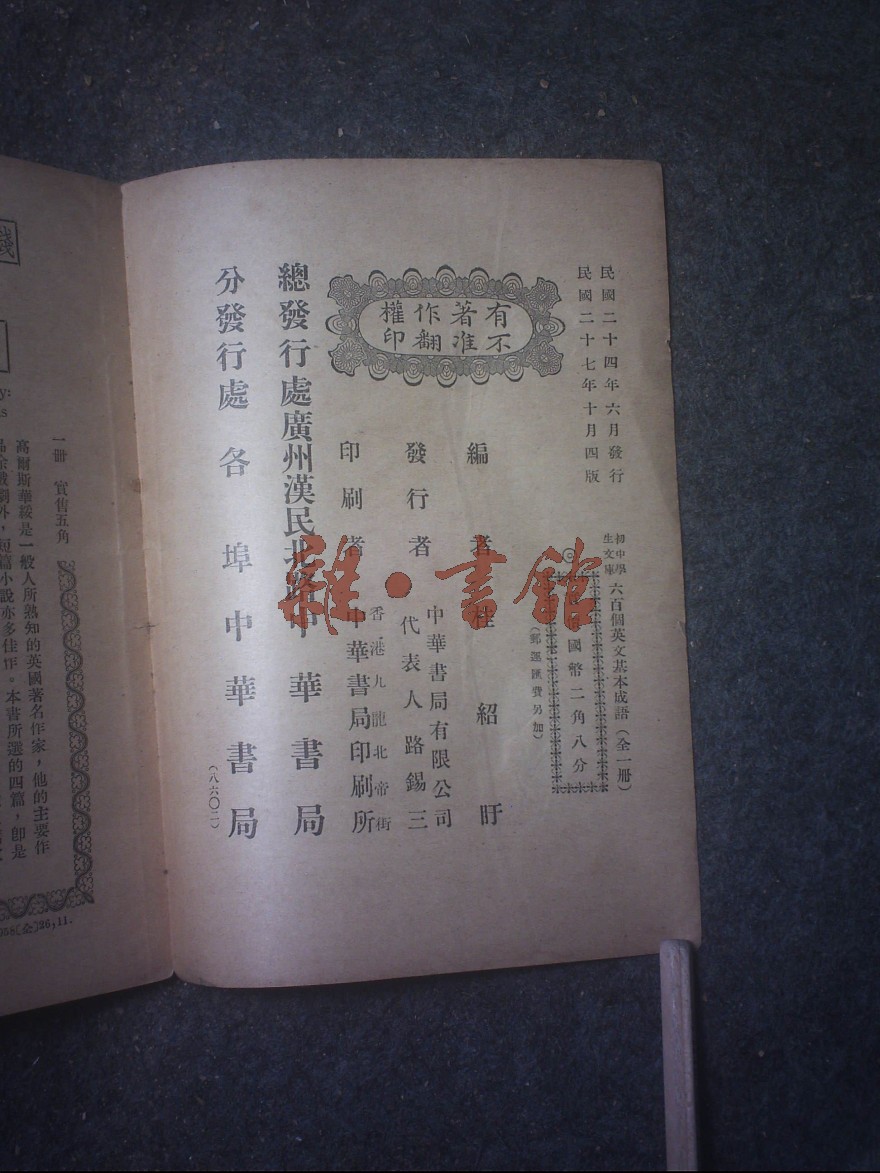 民國二十四年六月發行
民國二十七年十月四版
初中學
生文庫
六百個英文基本成語（全一冊）
國幣二角八分
（郵運匯費另加）
有著作權
不准翻印
編者 紹盱
發行者 中華書局有限公司
代表人路錫三
印刷者 香港九龍北帝街
中華書局印刷所
總發行處 廣州漢民北路 中華書局
分發行處 各埠中華書局
（八六〇二）
雜·書館
一冊 實售五角
高爾斯華綏是一般人所熟知的英國著名作家，他的主要作
外，短篇小說亦多佳作。本書所選的四篇，卽是
26,11.